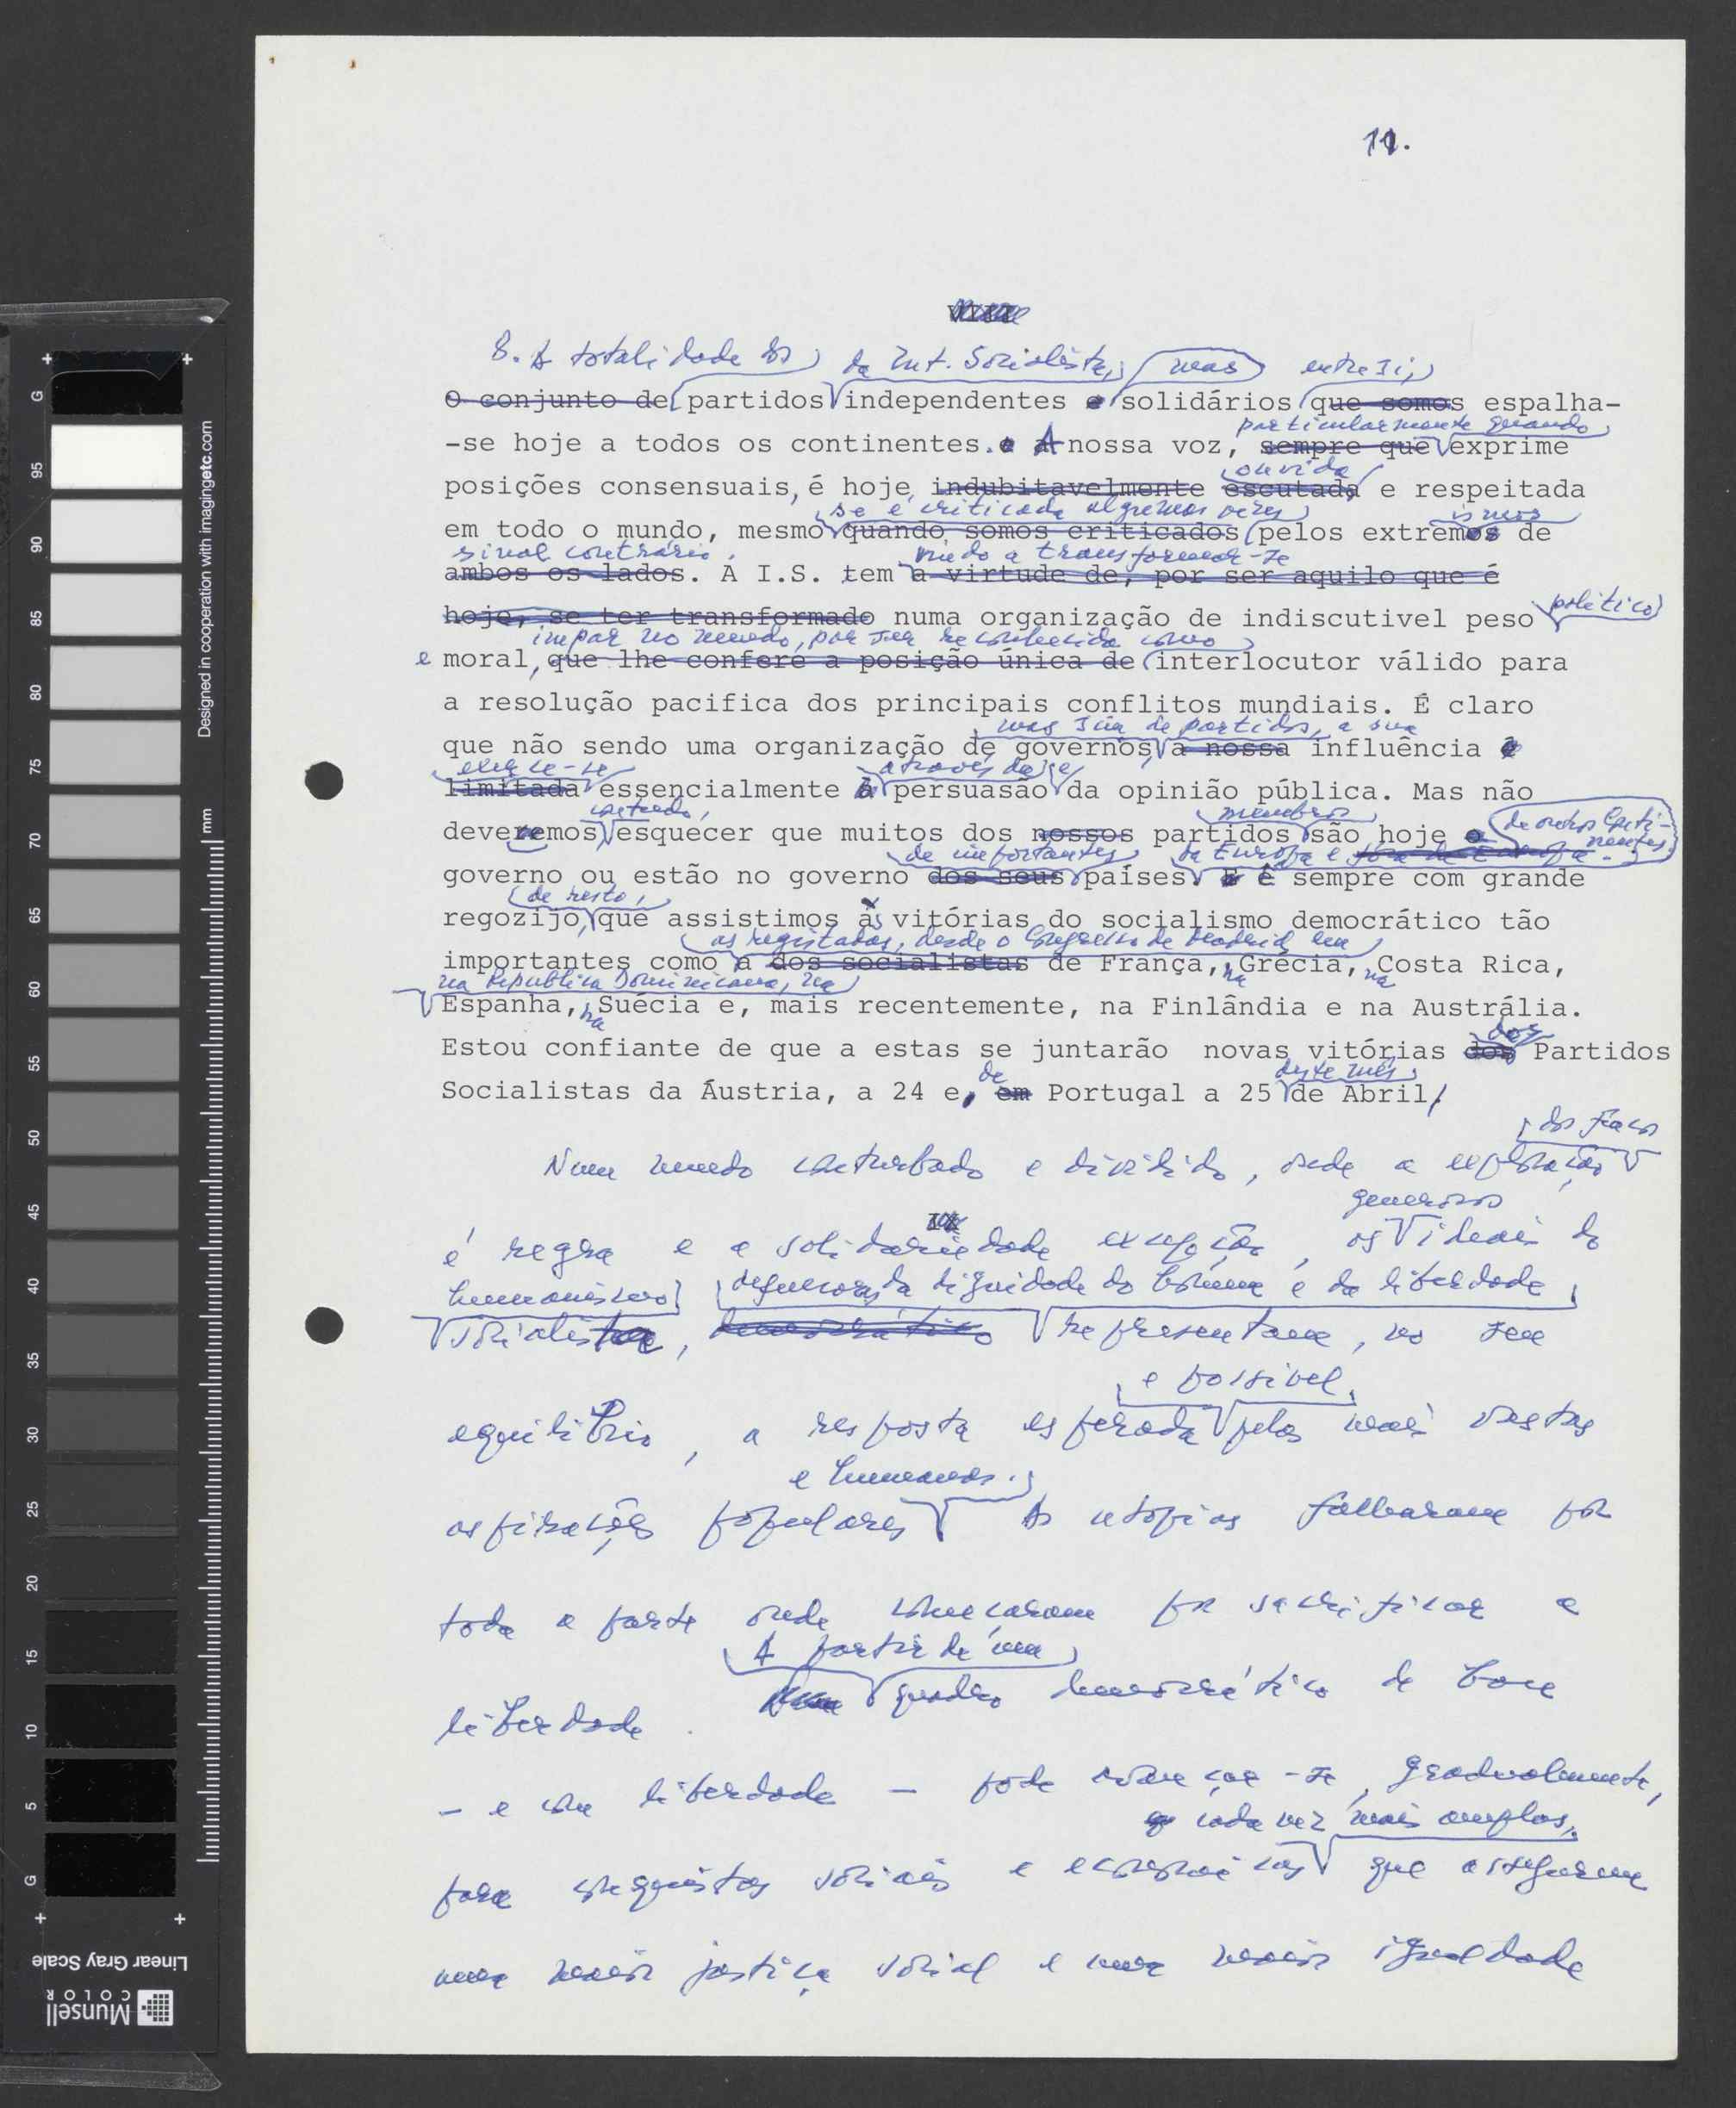 11.
VIII
8. A totalidade dos da Int. Socialista, mas entre si,
O conjunto de partidos independentes e solidários que somos espalha-
particularmente quando
-se hoje a todos os continentes. e A nossa voz, sempre que exprime
ouvida
posições consensuais, é hoje indubitavelmente escutada e respeitada
se é criticada algumas vezes ismos
em todo o mundo, mesmo quando somos criticados pelos extremos de
sinal contrário. vindo a transformar-se
ambos os lados. A I.S. tem a virtude de, por ser aquilo que é
político
hoje, se ter transformado numa organização de indiscutivel peso
impar no mundo, por ser reconhecida como
e moral, que lhe confere a posição única de interlocutor válido para
a resolução pacifica dos principais conflitos mundiais. É claro
mas sim de partidos, a sua
que não sendo uma organização de governos, a nossa influência é
exerce-se através da
limitada essencialmente à persuasão da opinião pública. Mas não
contudo, membros de outros Conti-
devemos esquecer que muitos dos nossos partidos são hoje o
de importantes da Europa e fora da Europa. nentes
governo ou estão no governo dos seus países. E É sempre com grande
de resto,
regozijo, que assistimos às vitórias do socialismo democrático tão
as registadas, desde o Congresso de Madrid, em
importantes como a dos socialistas de França, na Grécia, na Costa Rica,
na Republica Dominicana, na
Espanha, na Suécia e, mais recentemente, na Finlândia e na Austrália.
dos
Estou confiante de que a estas se juntarão novas vitórias dos Partidos
de deste mês
Socialistas da Áustria, a 24 e, em Portugal a 25 de Abril,
dos fracos
Num mundo conturbado e dividido, onde a exploração
generosos
IX
é regra e a solidariedade excepção, os ideais do
humanismo defensores da dignidade do homem e da liberdade,
socialista, democrático representam, no seu
e possível,
equilíbrio, a resposta esperada pelas mais vastas
e humanas.
aspirações populares As utopias falharam por
toda a parte onde começaram por sacrificar a
A partir de um
liberdade. Num quadro democrático de base
- e em liberdade - pode avançar-se, gradualmente,
cada vez mais amplas,
para conquistas sociais e económicas que assegurem
uma maior justiça social e uma maior igualdade
Designed in cooperation with imagingetc.com
mm
G
95
90
85
80
75
70
65
60
55
50
45
40
35
30
25
20
15
10
5
G
Linear Gray Scale
Munsell
COLOR